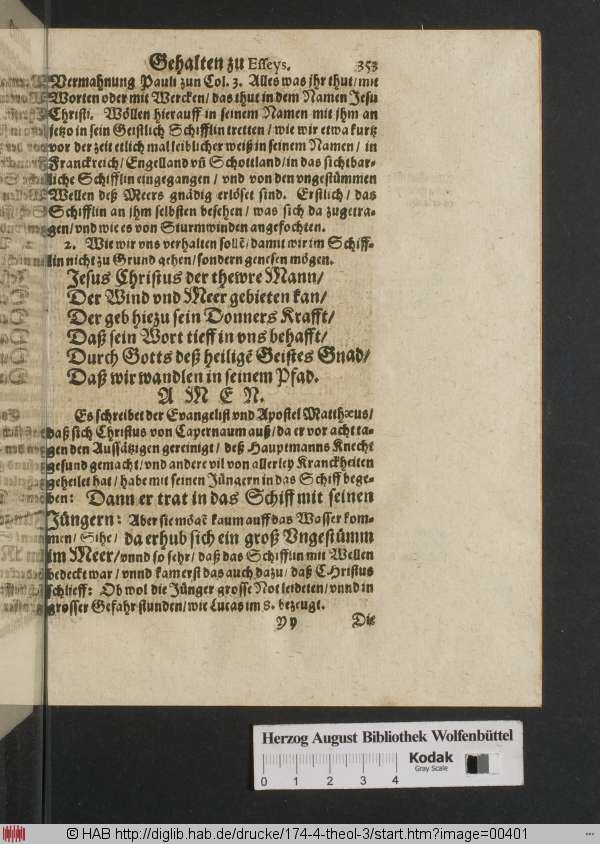 Gehalten zu Esseys. 353
Vermahnung Pauli zun Col. 3. Alles was jhr thut/ mit
Worten oder mit Wercken/ das thut in dem Namen Jesu
Christi. Wöllen hierauff in seinem Namen mit jhm an
jetzo in sein Geistlich Schifflin tretten/ wie wir etwa kurtz
vor der zeit etlich mal leiblicher weiß in seinem Namen/ in
Franckreich/ Engelland vñ Schottland/ in das sichtbar-
liche Schifflin eingegangen/ vnd von den vngestümmen
Wellen deß Meers gnädig erlöset sind. Erstlich/ das
Schifflin an jhm selbsten besehen/ was sich da zugetra-
gen/ vnd wie es von Sturmwinden angefochten.
2. Wie wir vns verhalten sollẽ/ damit wir im Schiff-
lin nicht zu Grund gehen/ sondern genesen mögen.
Jesus Christus der thewre Mann/
Der Wind vnd Meer gebieten kan/
Der geb hiezu sein Donners Krafft/
Daß sein Wort tieff in vns behafft/
Durch Gotts deß heiligẽ Geistes Gnad/
Daß wir wandlen in seinem Pfad.
A M E N.
Es schreibet der Evangelist vnd Apostel Matthæus/
daß sich Christus von Capernaum auß/ da er vor acht ta-
gen den Aussätzigen gereinigt/ deß Hauptmanns Knecht
gesund gemacht/ vnd andere vil von allerley Kranckheiten
geheilet hat/ habe mit seinen Jüngern in das Schiff bege-
ben: Dann er trat in das Schiff mit seinen
Jüngern: Aber sie mögẽ kaum auff das Wasser kom-
men/ Sihe/ da erhub sich ein groß Vngestümm
im Meer/ vnnd so sehr/ daß das Schifflin mit Wellen
bedeckt war/ vnnd kam erst das auch dazu/ daß CHristus
schlieff: Ob wol die Jünger grosse Not leideten/ vnnd in
grosser Gefahr stunden/ wie Lucas im 8. bezeugt.
Yy Die
Herzog August Bibliothek Wolfenbüttel
0 1 2 3 4
Kodak
Gray Scale
© HAB http://diglib.hab.de/drucke/174-4-theol-3/start.htm?image=00401